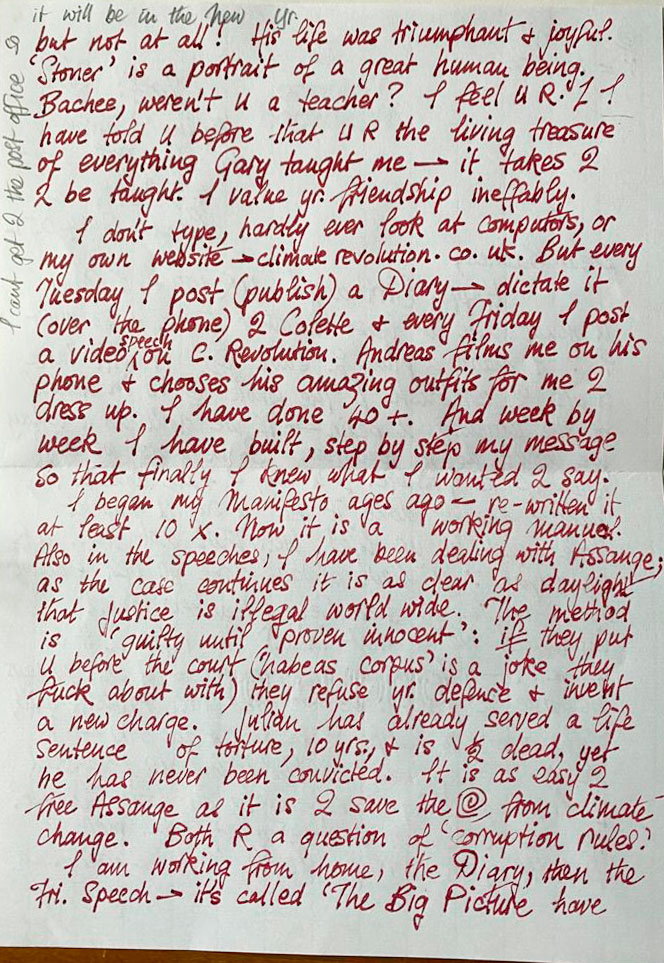 it will be in the new yr.
I cant get 2 the post office so
but not at all! His life was triumphant & joyful.
'Stoner' is a portrait of a great human being.
Bachee, weren't U a teacher? I feel U R. I
have told U before that U R the living treasure
of everything Gary taught me — it takes 2
2 be taught. I value yr. friendship ineffably.
I don't type, hardly ever look at computors, or
my own website → climate revolution. co. uk. But every
Tuesday I post (publish) a Diary — dictate it
(over the phone) 2 Colette & every Friday I post
a video speech on C. Revolution. Andreas films me on his
phone & chooses his amazing outfits for me 2
dress up. I have done 40 +. And week by
week I have built, step by step my message
so that finally I knew what I wanted 2 say.
I began my Manifesto ages ago — re-written it
at least 10 x. Now it is a working manual.
Also in the speeches, I have been dealing with Assange;
as the case continues it is as clear as daylight
that Justice is illegal world wide. The method
is 'guilty until proven innocent': if they put
U before the court ('habeas corpus' is a joke they
fuck about with) they refuse yr. defence & invent
a new charge. Julian has already served a life
sentence of torture, 10 yrs., & is ½ dead, yet
he has never been convicted. It is as easy 2
free Assange as it is 2 save the @ from climate
change. Both R a question of 'corruption rules'.
I am working from home, the Diary, then the
Fri. Speech → it's called 'The Big Picture have